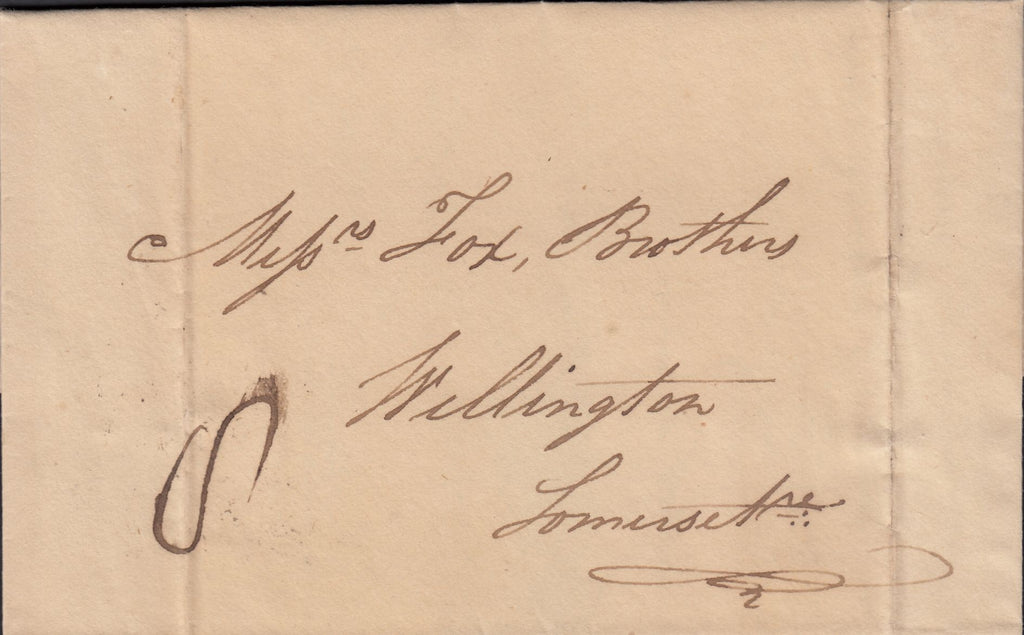 Messrs Fox, Brothers
Wellington
Somersetsre